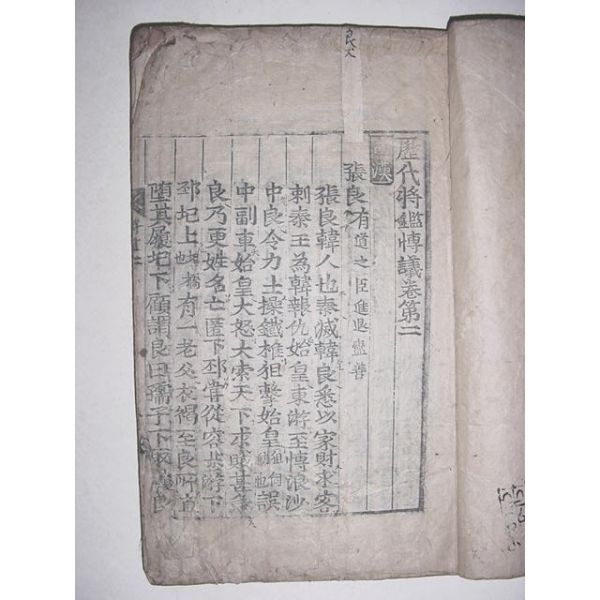 歷代將鑑愽議卷第二
漢
張良 有道之臣進退盡善
張良韓人也秦滅韓良悉以家財求客
刺秦王為韓報仇始皇東游至愽浪沙
中良令力士操鐵椎狙擊始皇狙伺也誤
中副車始皇大怒大索天下求賊甚急
良乃更姓名亡匿下邳甞從容步游下
邳圯上圯橋也有一老父衣褐至良所直
墮其履圯下顧謂良曰孺子下取履良